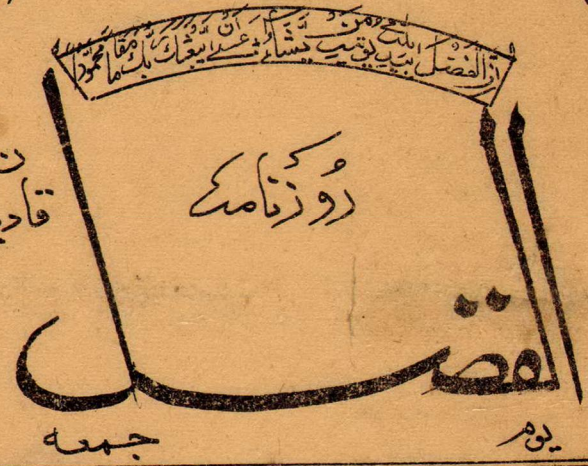 ان الفضل بيد الله يؤتيه من يشاء عسى أن يبعثك ربك مقاما محمودا
روزنامہ
الفضل
یوم جمعہ